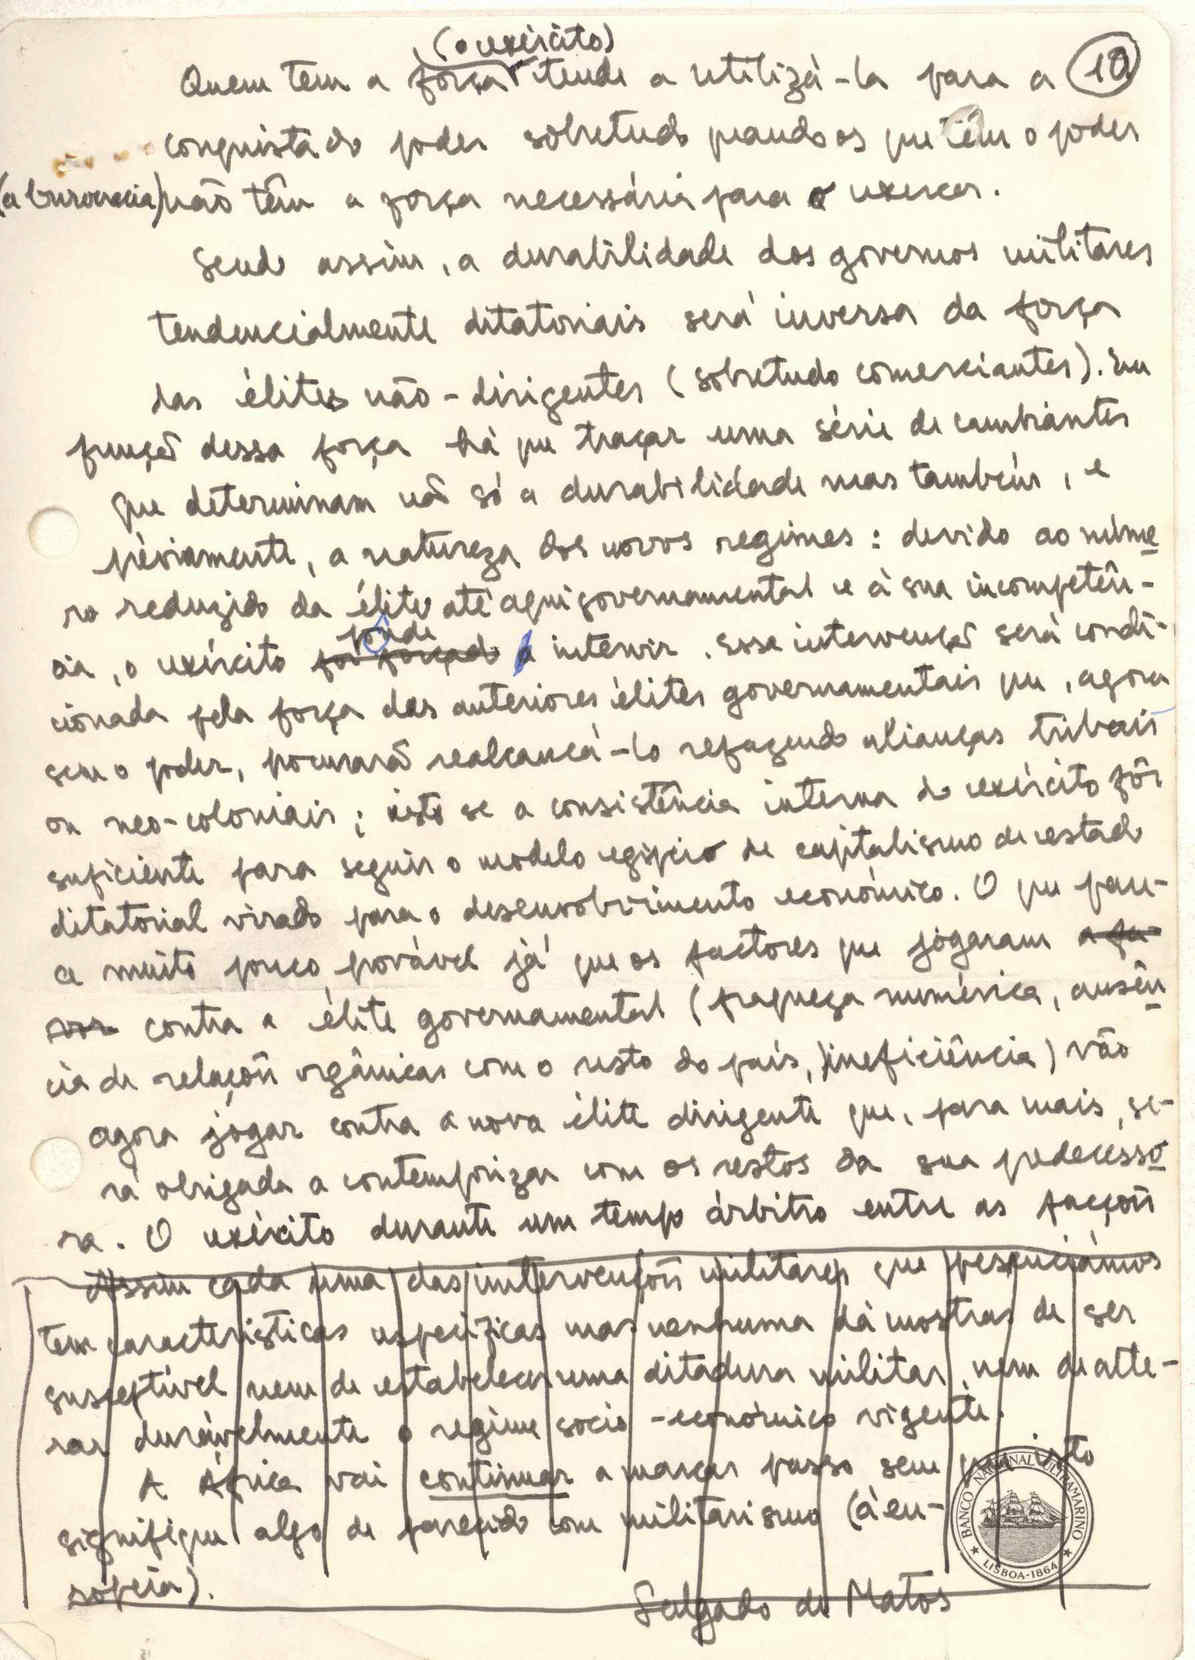 (o exército)
Quem tem a força tende a utilizá-la para a 10
conquista do poder sobretudo quando os que têm o poder
(a burocracia) não têm a força necessária para o exercer.
Sendo assim, a durabilidade dos governos militares
tendencialmente ditatoriais será inversa da força
das élites não-dirigentes (sobretudo comerciantes). Em
função dessa força há que traçar uma série de cambiantes
que determinam não só a durabilidade mas também, e
préviamente, a natureza dos novos regimes: devido ao núme
ro reduzido da élite até aqui governamental e à sua incompetên-
cia, o exército foi forçado a intervir. Essa intervenção será condi-
pôde
cionada pela força das anteriores élites governamentais que, agora
sem o poder, procurarão realcançá-lo refazendo alianças tribais
ou neo-coloniais; isto se a consistência interna do exército fôr
suficiente para seguir o modelo egípcio de capitalismo de estado
ditatorial virado para o desenvolvimento económico. O que pare-
ce muito pouco provável já que os factores que jogaram
contra a élite governamental (fraqueza numérica, ausên
cia de relações orgânicas com o resto do país, ineficiência) vão
agora jogar contra a nova élite dirigente que, para mais, se-
rá obrigada a contemporizar com os restos da sua predecesso
ra. O exército durante um tempo árbitro entre as facções
Assim cada uma das intervenções militares que presenciámos
tem características específicas mas nenhuma dá mostras de ser
susceptível nem de estabelecer uma ditadura militar, nem de alte-
rar duràvelmente o regime socio-económico vigente.
A África vai continuar a marcar passo sem que isto
signifique algo de parecido com militarismo (à eu-
ropeia).
Salgado de Matos
BANCO NACIONAL ULTRAMARINO
LISBOA-1864